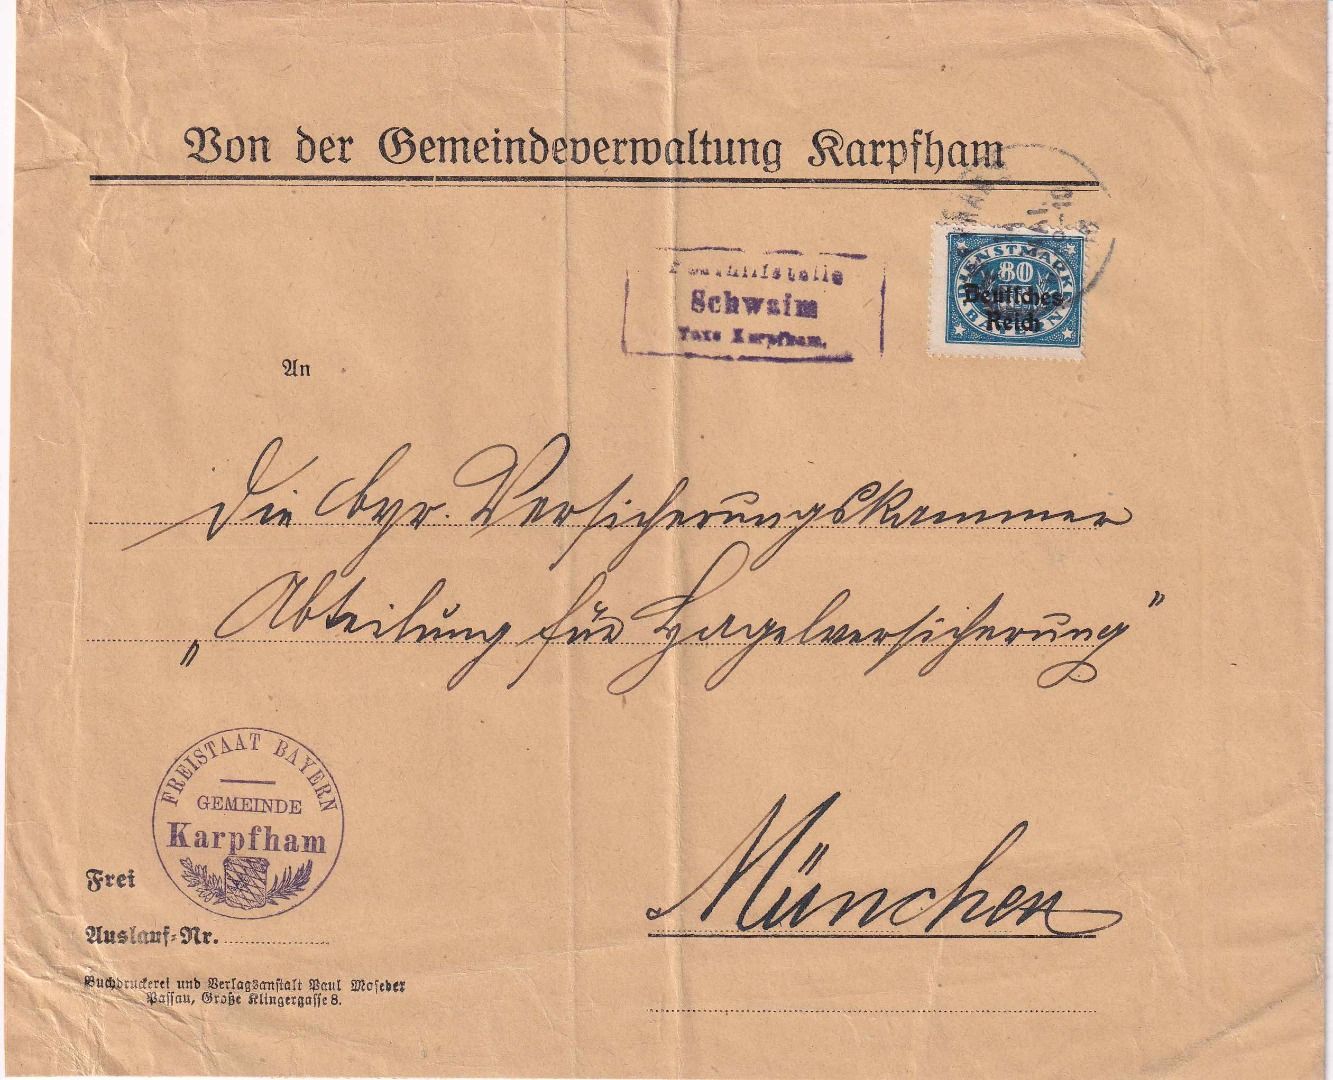 Von der Gemeindeverwaltung Karpfham
Posthilfstelle
Schwaim
Taxe Karpfham.
DIENSTMARKE
80
Deutsches
Reich
BAYERN
An
Die byr. Versicherungskammer
„Abteilung für Hagelversicherung"
München
FREISTAAT BAYERN
GEMEINDE
Karpfham
Frei
Auslauf-Nr.
Buchdruckerei und Verlagsanstalt Paul Moseder
Passau, Große Klingergasse 8.